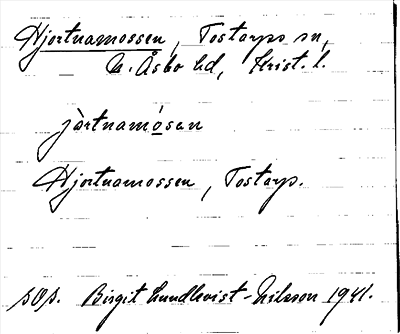 Hjortnamossen, Tostarps sn,
N. Åsbo hd, Krist. l.
jòrtnamósan
Hjortnamossen, Tostarp.
sOp. Birgit Lundkvist-Nilsson 1941.